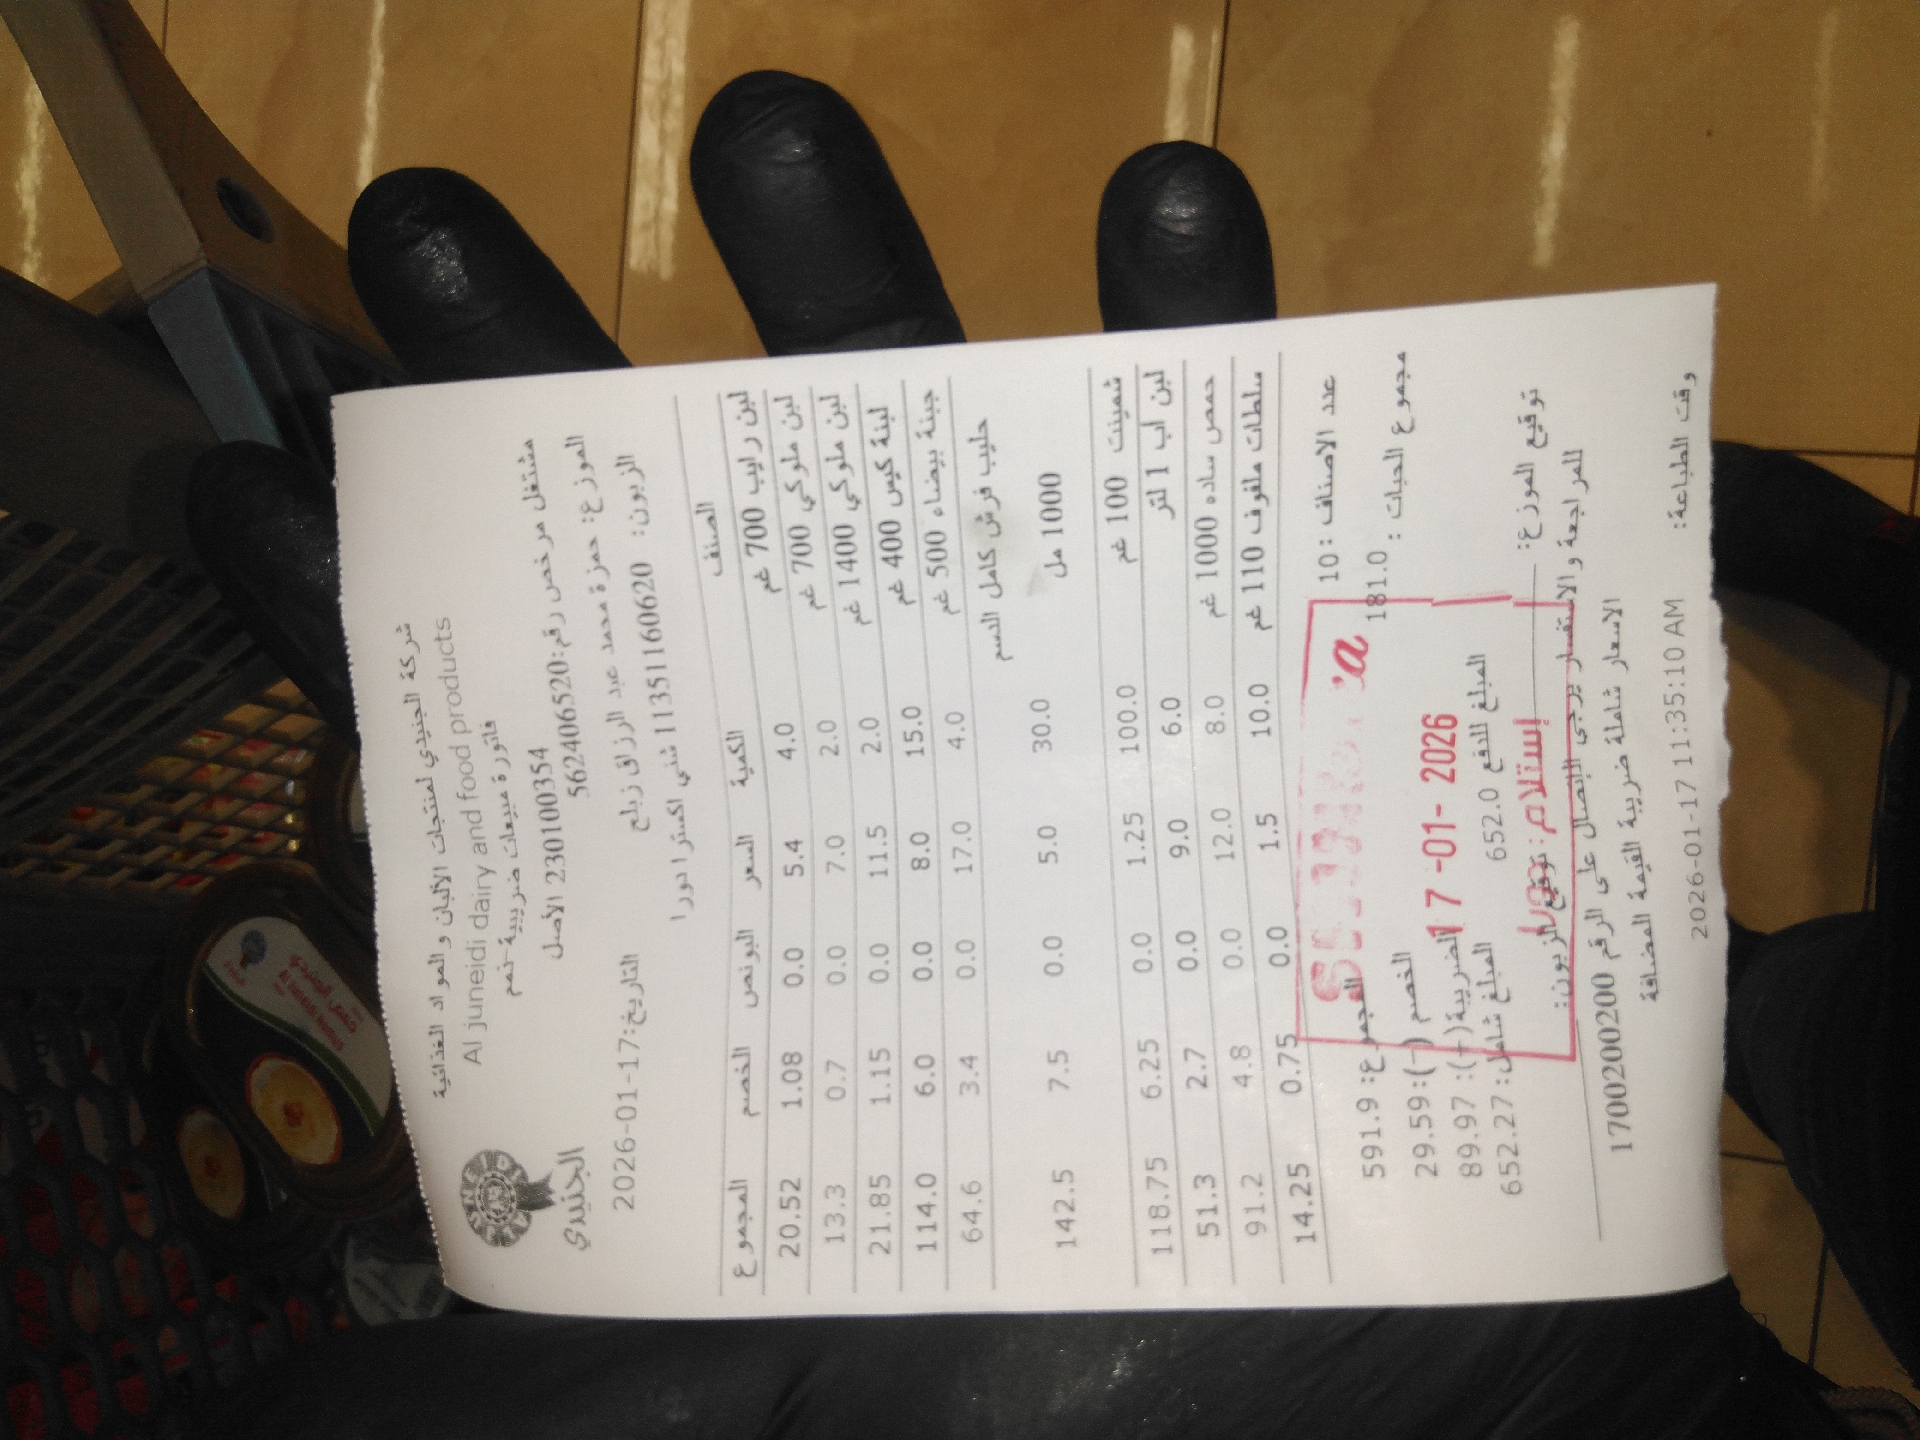 شركة الجنيدي لمنتجات الألبان و المواد الغذائية
Al juneidi dairy and food products
فاتورة مبيعات ضريبية-نهم
الجنيدي
مشتغل مرخص رقم:562406520
2301100354 الأصل
الموزع: حمزة محمد عبد الرزاق زبلح
التاريخ:2026-01-17
الزبون: 11351160620 شني اكسترا دورا
الصنف الكمية السعر البونص الخصم المجموع
لبن رايب 700 غم 4.0 5.4 0.0 1.08 20.52
لبن ملوكي 700 غم 2.0 7.0 0.0 0.7 13.3
لبن ملوكي 1400 غم 2.0 11.5 0.0 1.15 21.85
لبنة كيس 400 غم 15.0 8.0 0.0 6.0 114.0
جبنة بيضاء 500 غم 4.0 17.0 0.0 3.4 64.6
حليب فرش كامل الدسم
1000 مل 30.0 5.0 0.0 7.5 142.5
شمينت 100 غم 100.0 1.25 0.0 6.25 118.75
لبن اب 1 لتر 6.0 9.0 0.0 2.7 51.3
حمص ساده 1000 غم 8.0 12.0 0.0 4.8 91.2
سلطات ملفوف 110 غم 10.0 1.5 0.0 0.75 14.25
عدد الاصناف : 10
المجموع: 591.9
مجموع الحبات : 181.0
الخصم (-): 29.59
17 -01- 2026
الضريبة(+): 89.97
المبلغ للدفع 652.0
المبلغ شامل: 652.27
إستلام:
توقيع الموزع:
توقيع الزبون:
للمراجعة والاستفسار يرجى الاتصال على الرقم 1700200200
الاسعار شاملة ضريبة القيمة المضافة
وقت الطباعة: 2026-01-17 11:35:10 AM